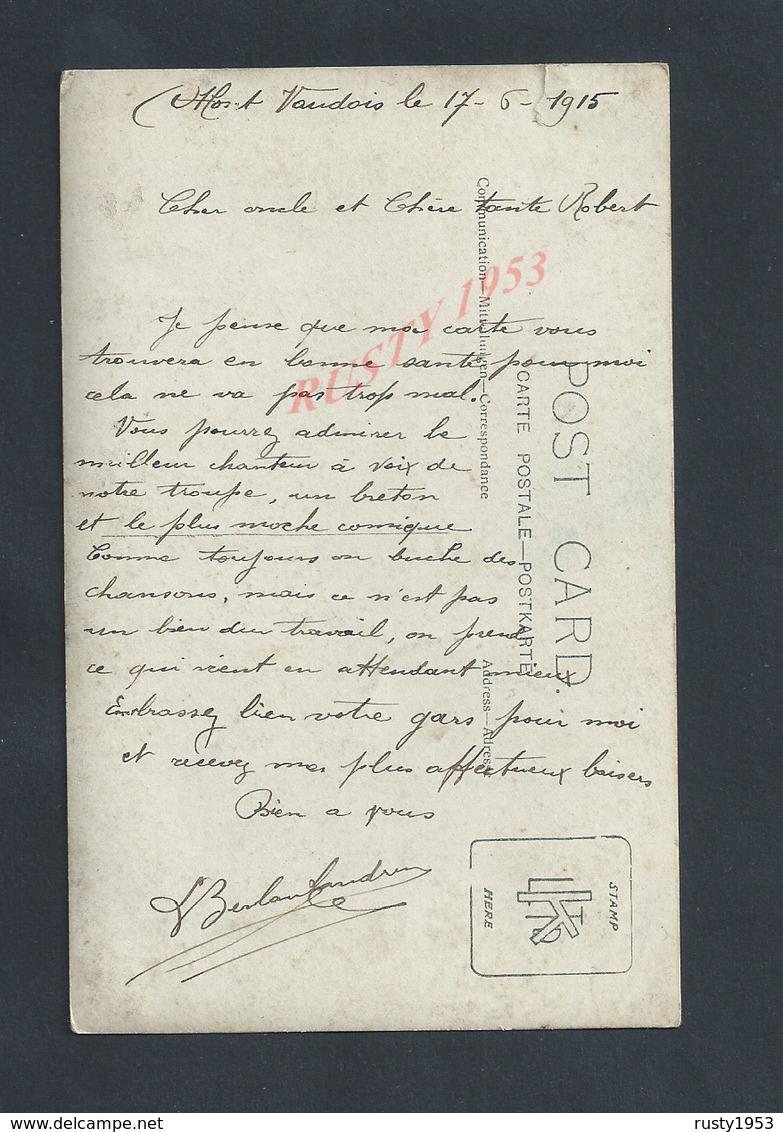 Mont Vaudois le 17-6-1915
Cher oncle et Chère tante Robert
Je pense que ma carte vous
trouvera en bonne santé pour moi
cela ne va pas trop mal.
Vous pourrez admirer le
meilleur chanteur à voix de
notre troupe, un breton
et le plus moche comique
Comme toujours on buche des
chansons, mais ce n'est pas
un bien dur travail, on prend
ce qui vient en attendant mieux
Embrassez bien votre gars pour moi
et recevez mes plus affectueux baisers
Bien a vous
POST CARD.
CARTE POSTALE—POSTKARTE
Communication—Mitteilungen—Correspondance
Address—Adresse
STAMP
HERE
RUSTY 1953
delcampe.net
rusty1953